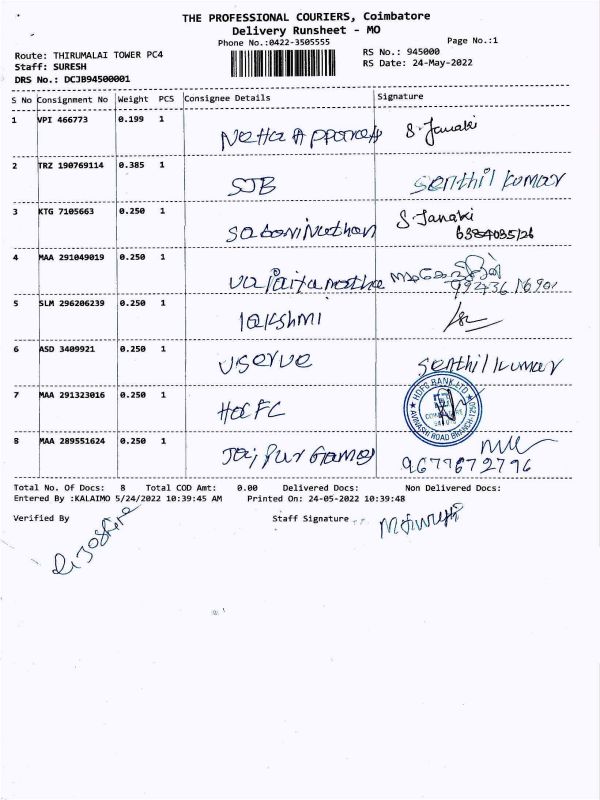 THE PROFESSIONAL COURIERS, Coimbatore
Delivery Runsheet - MO
Phone No.:0422-3505555 Page No.:1
Route: THIRUMALAI TOWER PC4 RS No.: 945000
Staff: SURESH RS Date: 24-May-2022
DRS No.: DCJB94500001
S No Consignment No Weight PCS Consignee Details Signature
1 VPI 466773 0.199 1 S. Janaki
2 TRZ 190769114 0.385 1 SJB Senthil kumar
3 KTG 7105663 0.250 1 S. Janaki
4 MAA 291049019 0.250 1
5 SLM 296206239 0.250 1 lakshmi
6 ASD 3409921 0.250 1 userve Senthil kumar
7 MAA 291323016 0.250 1 HDFC HDFC BANK LTD AVINASHI ROAD BRANCH
8 MAA 289551624 0.250 1 Jaipur 9677672796
Total No. Of Docs: 8 Total COD Amt: 0.00 Delivered Docs: Non Delivered Docs:
Entered By :KALAIMO 5/24/2022 10:39:45 AM Printed On: 24-05-2022 10:39:48
Verified By Staff Signature